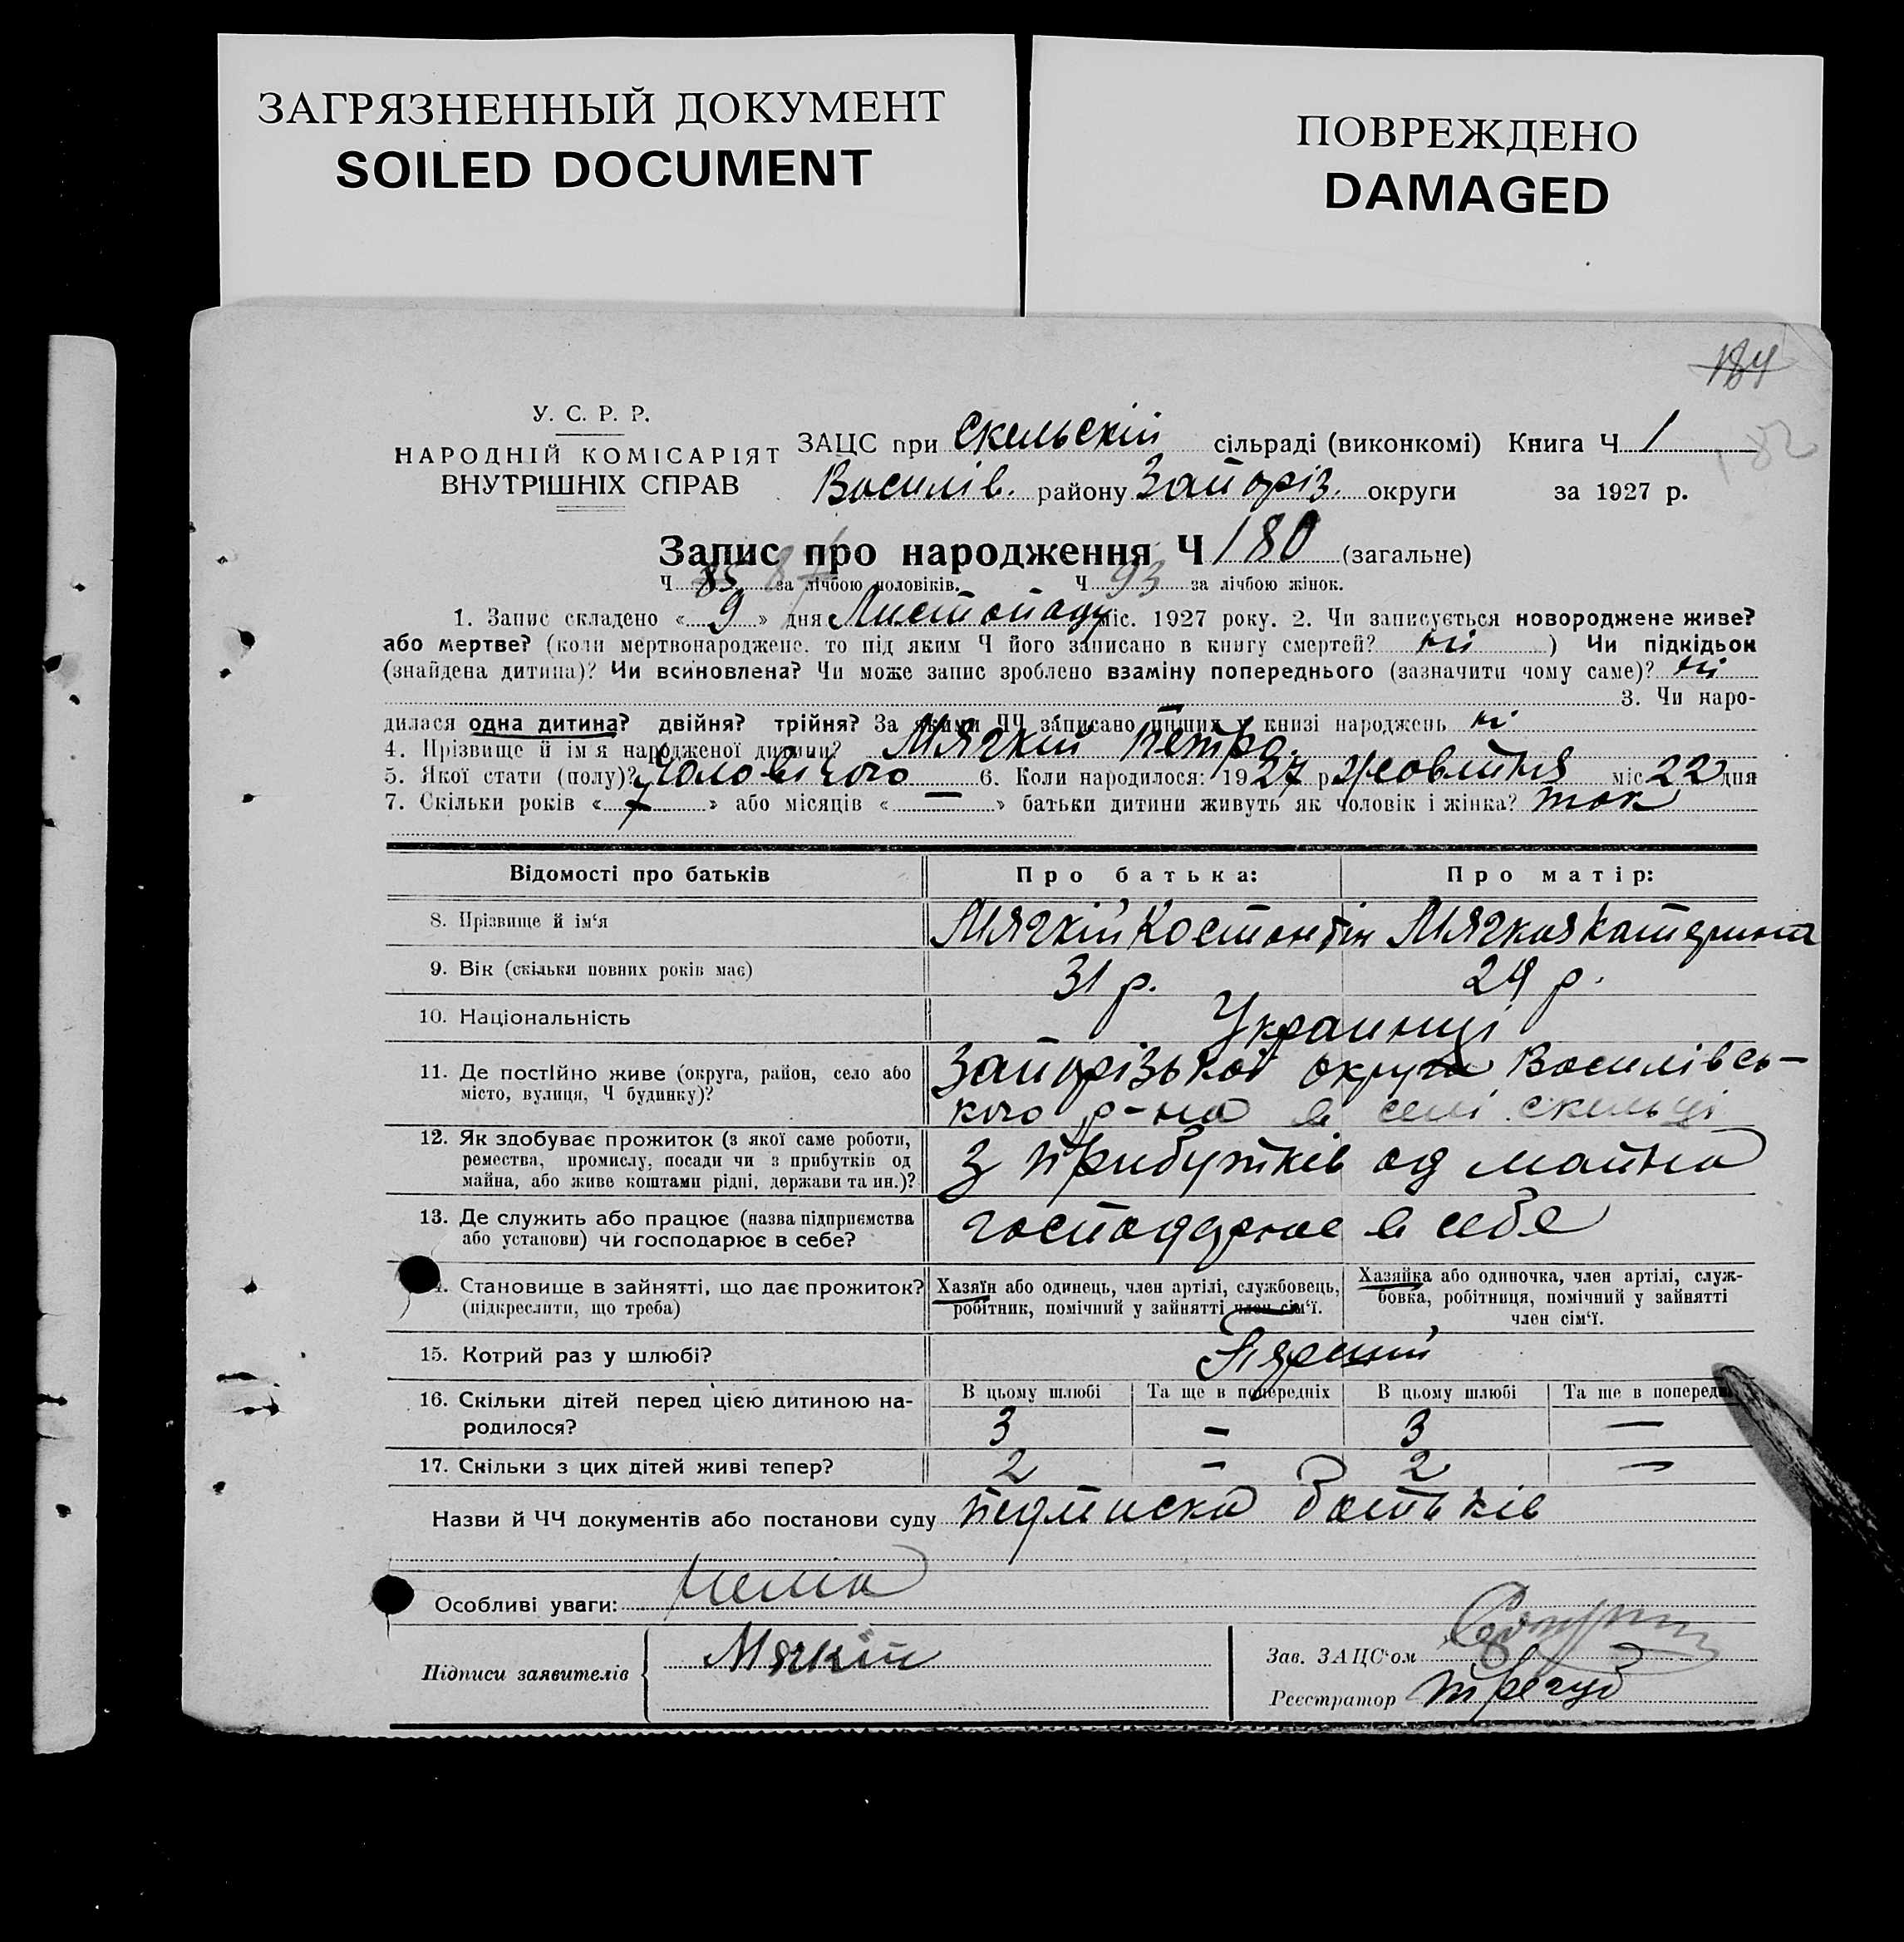 ЗАГРЯЗНЕННЫЙ ДОКУМЕНТ
SOILED DOCUMENT
ПОВРЕЖДЕНО
DAMAGED
184
У. С. Р. Р.
НАРОДНІЙ КОМІСАРІЯТ
ВНУТРІШНІХ СПРАВ
ЗАЦС при Скельскій сільраді (виконкомі) Книга Ч 1
Василів. району Запоріз. округи за 1927 р.
Запис про народження Ч 180 (загальне)
Ч 85 87 за лічбою чоловіків. Ч 93 за лічбою жінок.
1. Запис складено « 9 » дня Листопаду міс. 1927 року. 2. Чи записується новороджене живе?
або мертве? (коли мертвонароджене, то під яким Ч його записано в книгу смертей? ні ) Чи підкідьок
(знайдена дитина)? Чи всиновлена? Чи може запис зроблено взаміну попереднього (зазначити чому саме)? ні
3. Чи наро-
дилася одна дитина? двійня? трійня? За якими ЧЧ записано инших у книзі народжень ні
4. Прізвище й ім'я народженої дитини? Мягкій Петро.
5. Якої стати (полу)? Чоловічого 6. Коли народилося: 1927 р. Жовтня міс 22 дня
7. Скільки років « 7 » або місяців « — » батьки дитини живуть як чоловік і жінка? так
Відомості про батьків
Про батька:
Про матір:
8. Прізвище й ім‘я
Мягкій Костонтін
Мягкая Катерина
9. Вік (скільки повних років має)
31 р.
29 р.
10. Національність
Украинці
11. Де постійно живе (округа, район, село або
місто, вулиця, Ч будинку)?
Запорізької округи Василівсь-
кого р-на в селі Скельці
12. Як здобуває прожиток (з якої саме роботи,
ремества, промислу, посади чи з прибутків од
майна, або живе коштами рідні, держави та ин.)?
з прибутків од майна
13. Де служить або працює (назва підприємства
або установи) чи господарює в себе?
господарює в себе
14. Становище в зайнятті, що дає прожиток?
(підкреслити, що треба)
Хазяїн або одинець, член артілі, службовець,
робітник, помічний у зайнятті член сім‘ї.
Хазяйка або одиночка, член артілі, служ-
бовка, робітниця, помічний у зайнятті
член сім‘ї.
15. Котрий раз у шлюбі?
Перший
16. Скільки дітей перед цією дитиною на-
родилося?
В цьому шлюбі
Та ще в попередніх
В цьому шлюбі
Та ще в попередніх
3 - 3 —
17. Скільки з цих дітей живі тепер?
2 - 2 —
Назви й ЧЧ документів або постанови суду підписка батьків
Особливі уваги: нема
Підписи заявителів
Мягкій
Зав. ЗАЦС‘ом
Реєстратор Трегуб